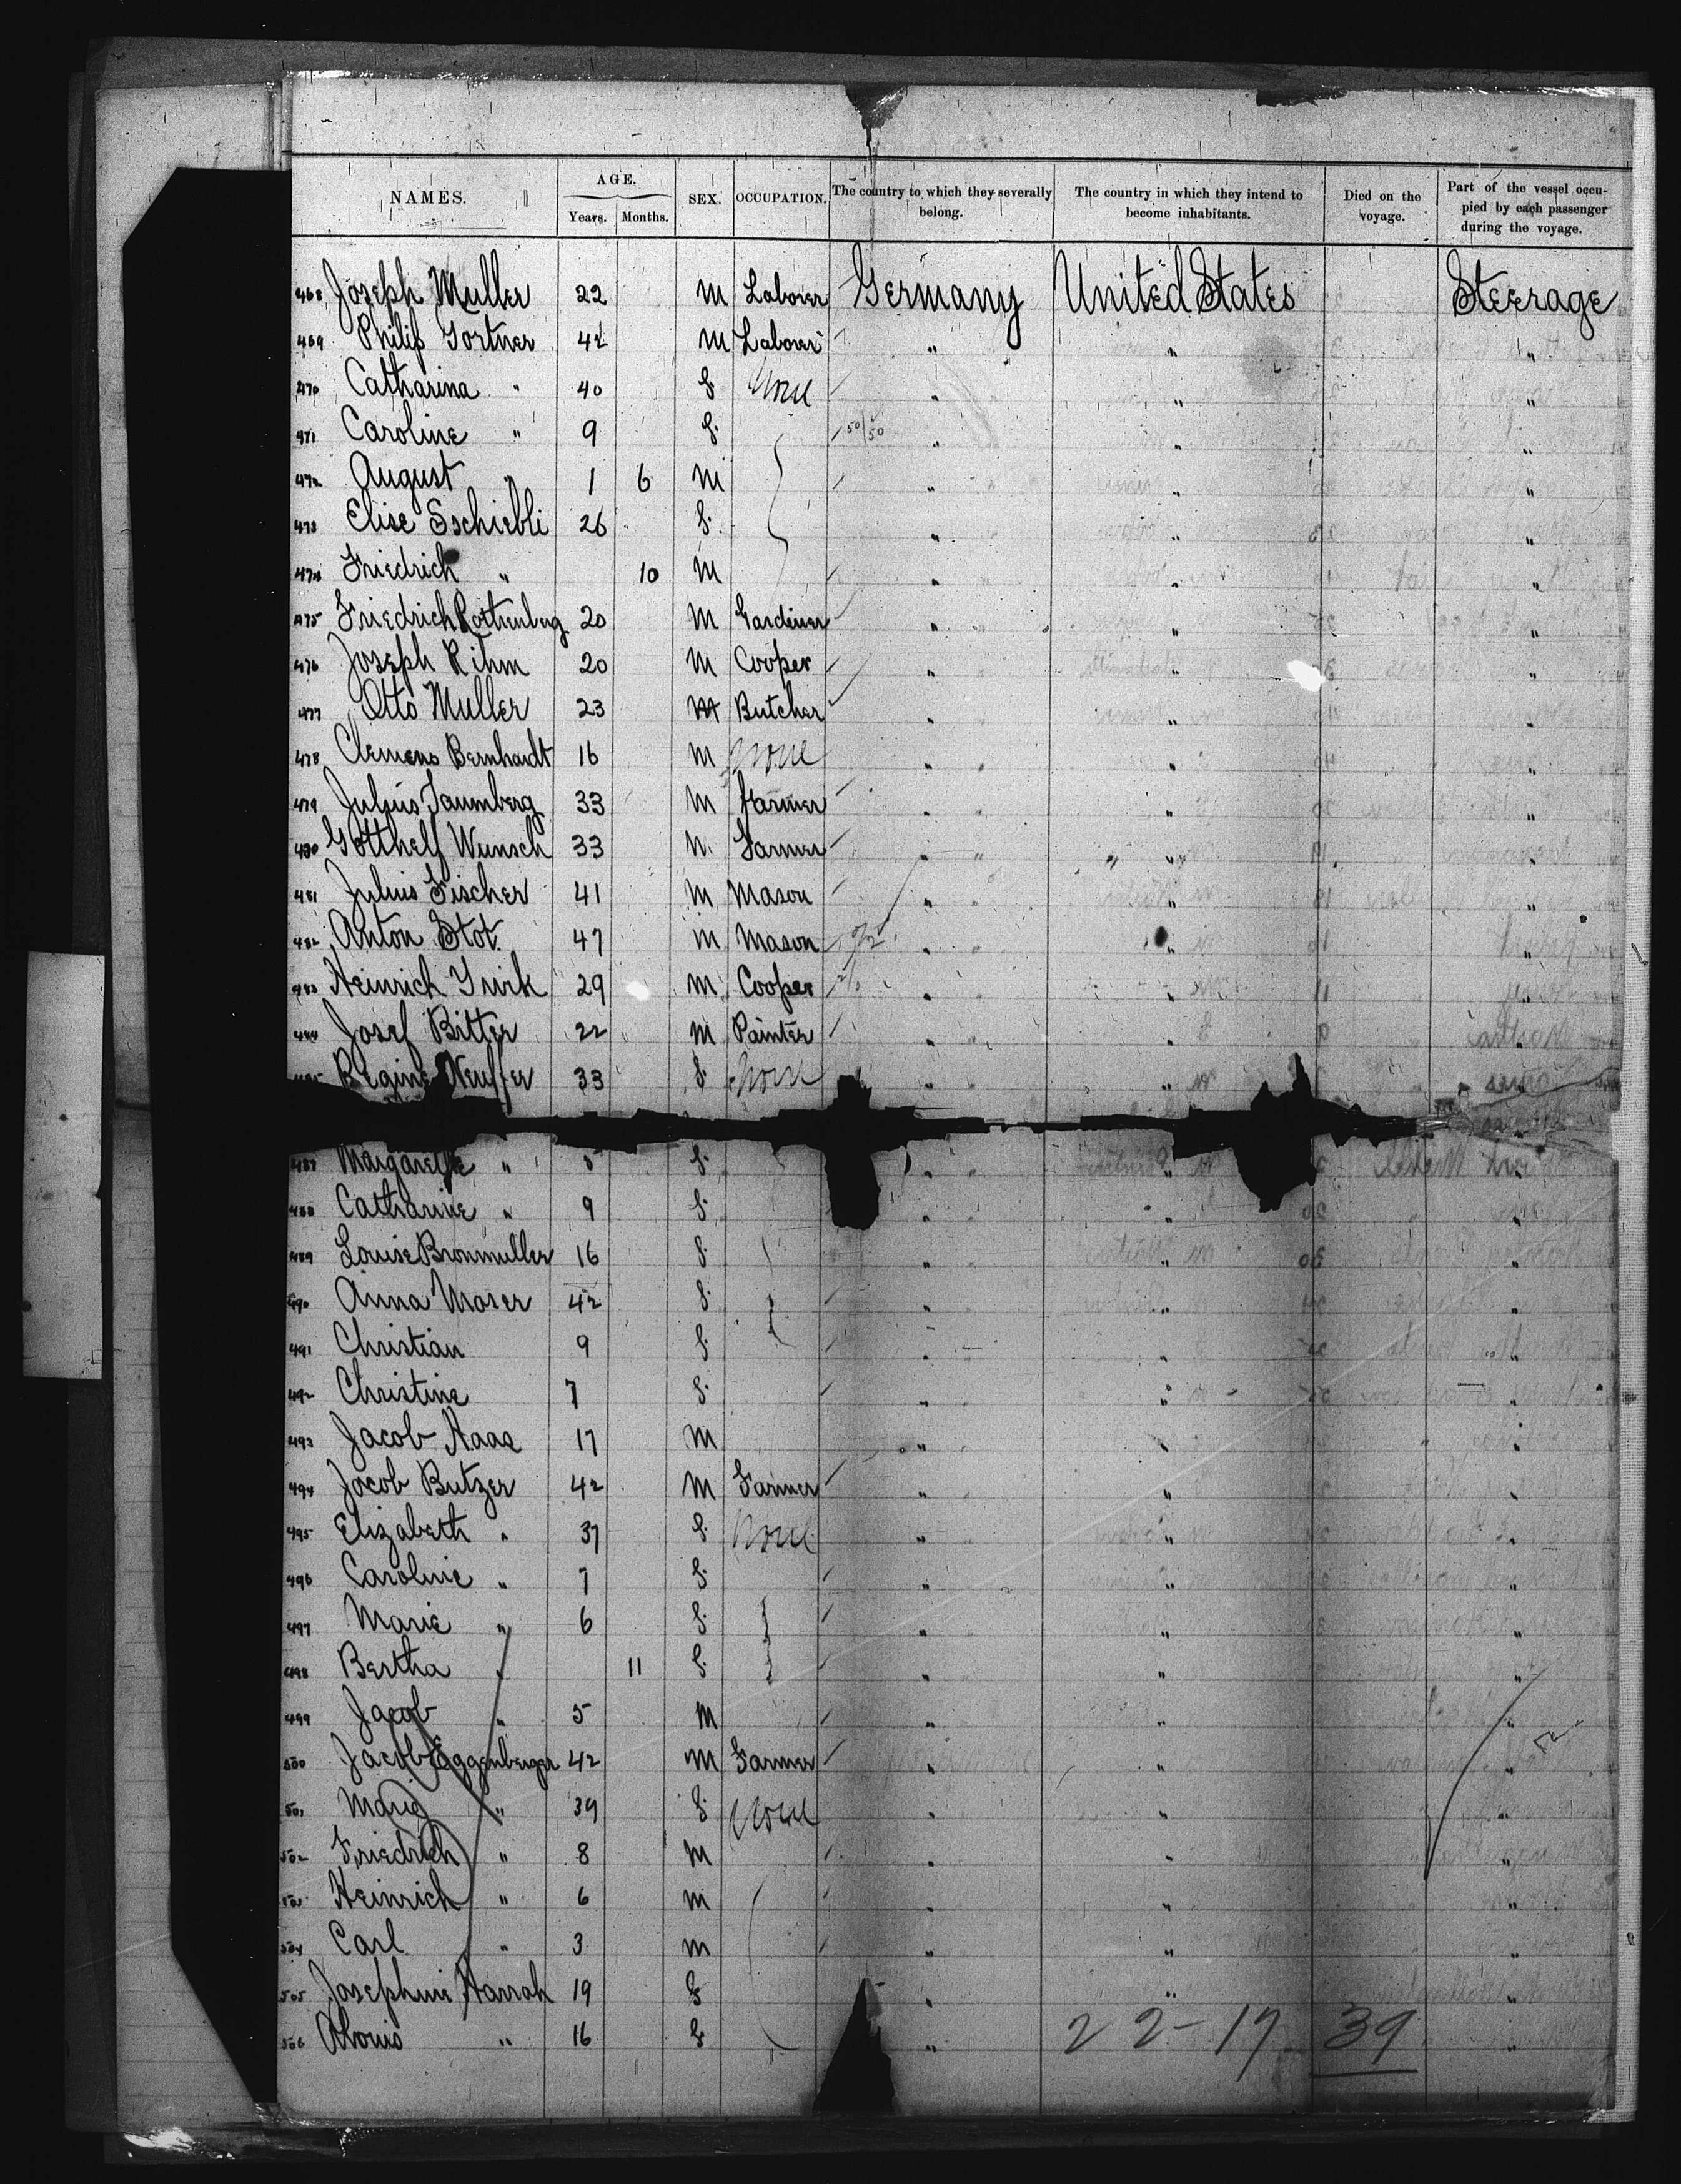 NAMES. AGE. Years. Months. SEX. OCCUPATION. The country to which they severally belong. The country in which they intend to become inhabitants. Died on the voyage. Part of the vessel occupied by each passenger during the voyage.
468 Joseph Muller 22 M Laborer Germany United States Steerage
469 Philip Gortner 42 M Laborer " " "
470 Catharina " 40 F None " " "
471 Caroline " 9 F 50/50 " " "
472 August " 1 6 M " " "
473 Elise 26 F " " "
474 Friedrich " 10 M " " "
475 Friedrich Rothenberg 20 M Gardiner " " "
476 Joseph Rihm 20 M Cooper " " "
477 Otto Muller 23 M Butcher " " "
478 Clemens Bernhardt 16 M None " " "
479 Julius Taumberg 33 M Farmer " " "
480 Gotthelf Wunsch 33 M Farmer " " "
481 Julius Fischer 41 M Mason " " "
482 Anton Stot 47 M Mason " " "
483 Heinrich 29 M Cooper " " "
484 Josef Bitter 22 M Painter " " "
485 Regine Neuffer 33 F None " " "
487 Margarethe " F " " "
488 Catharine " 9 F " " "
489 Louise Bronmuller 16 F " " "
490 Anna Moser 42 F " " "
491 Christian 9 F " " "
492 Christine 7 F " " "
493 Jacob Haas 17 M " " "
494 Jacob Butzer 42 M Farmer " " "
495 Elizabeth " 37 F None " " "
496 Caroline " 7 F " " "
497 Marie " 6 F " " "
498 Bertha " 11 F " " "
499 Jacob " 5 M " " "
500 Jacob Eggenberger 42 M Farmer " " "
501 Marie " 39 F None " " "
502 Friedrich " 8 M " " "
503 Heinrich " 6 M " " "
504 Carl " 3 M " " "
505 Josephine Harrah 19 F " " "
506 " 16 F " "
22-17 39